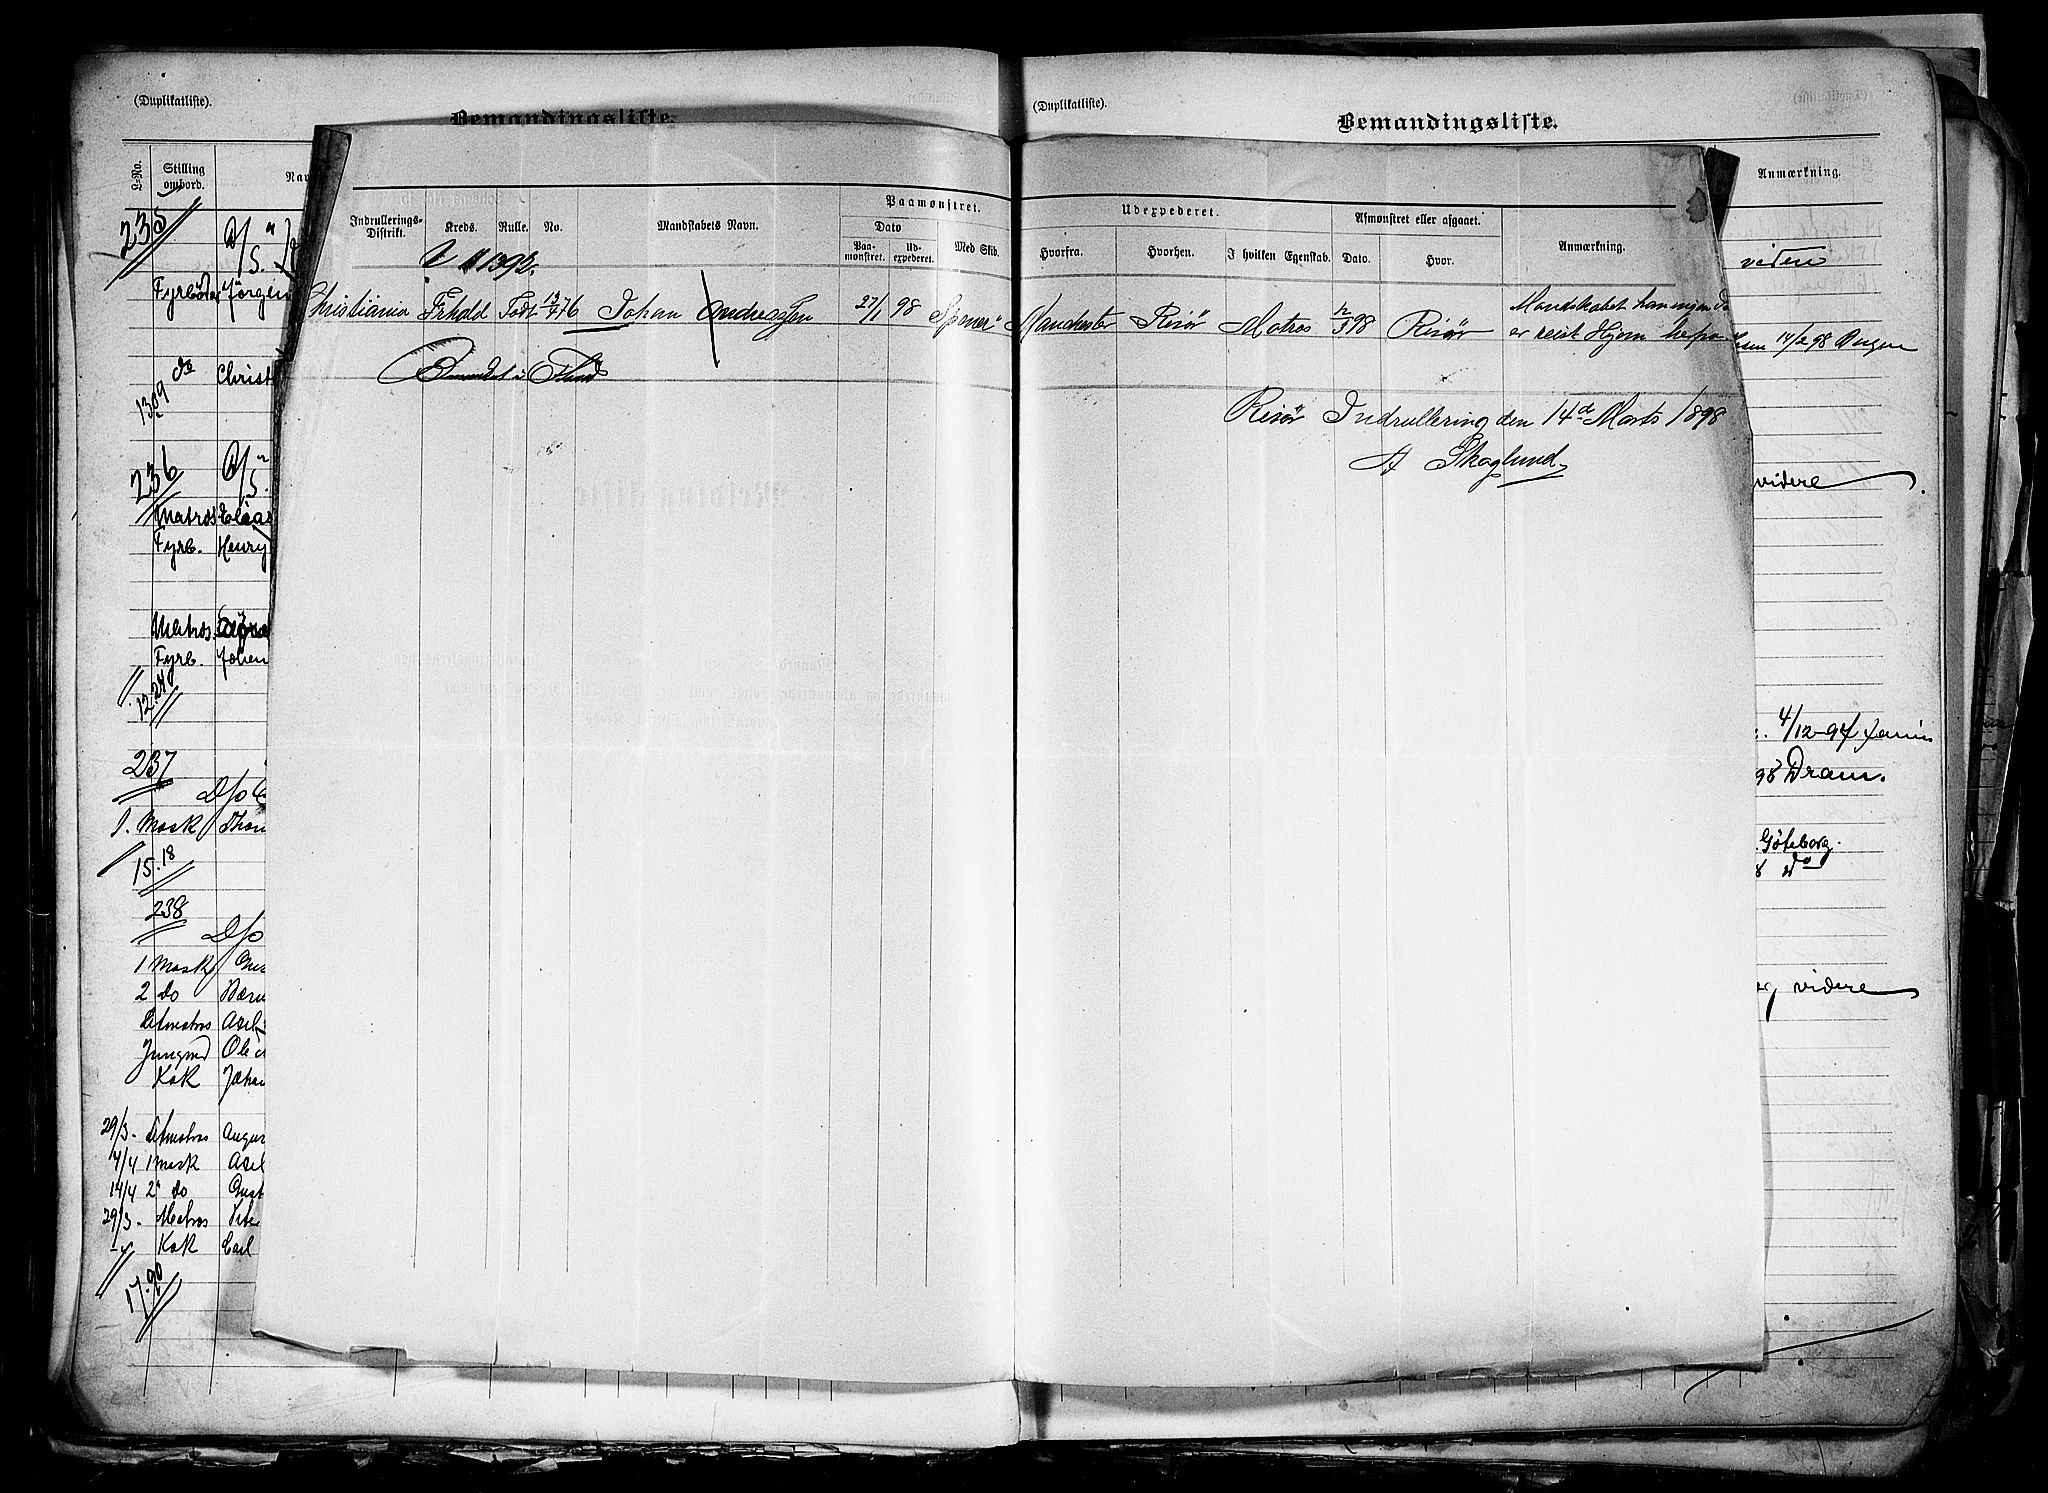 (Duplikatliste).
Bemandingsliste.
L-No.
Stilling ombord.
Nav
235
D/S.
Fyrböder Jörgen
do Christ
1309
236
D/S.
Matros Elias
Fyrb. Henry
Matros.
Fyrb. Johan
12.24
237
D/s
1. Mask Thom
15.18
238
D/s
1 Mask
2 do
Letmatros Axel
Jungmd Ole
Kok Johan
29/3- Letmatros Augus
4/4 1 Mask Axel
14/4 2 do Gust
29/3- Matros Pete
Kok Carl
17.90
Indrullerings-Distrikt. Kreds. Rulle. No. Mandskabets Navn. Paamønstret. Dato Paa-mønstret. Ud-expederet. Med Skib.
Udexpederet. Hvorfra. Hvorhen. I hvilken Egenskab. Afmønstret eller afgaaet. Dato. Hvor. Anmærkning.
1392.
Christiania Frhold Födt 13/7 76 Johan Andreassen 27/1 98 Manchester Risör Matros 12/3 98 Risör Mandskabet har ingen
er reist Hjem herfra
Risör Indrullering den 14de Marts 1898
A Skoglund
(Duplikatliste).
Bemandingsliste.
Anmærkning.
14/2 98 Bergen
videre
4/12-97
98 Dram.
Göteborg.
8 do
videre